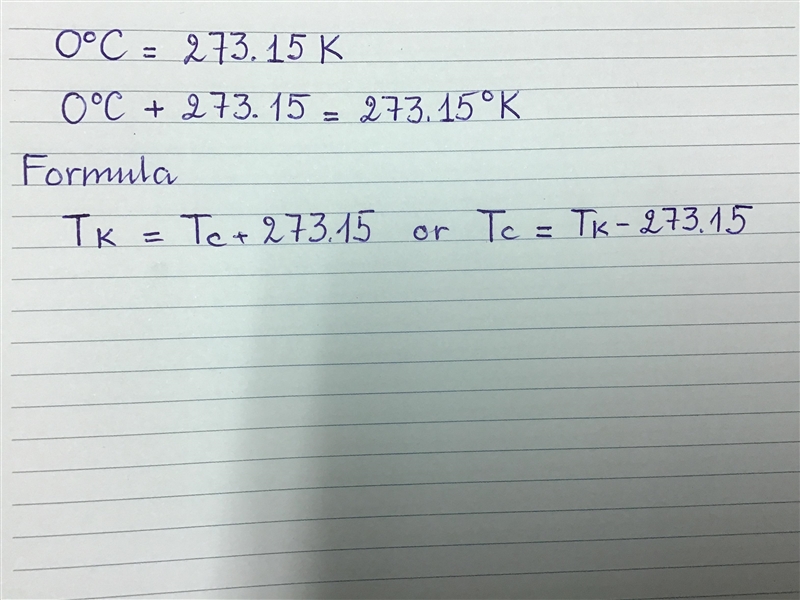 0°C = 273.15 K
0°C + 273.15 = 273.15°K
Formula
TK = Tc + 273.15 or Tc = TK - 273.15